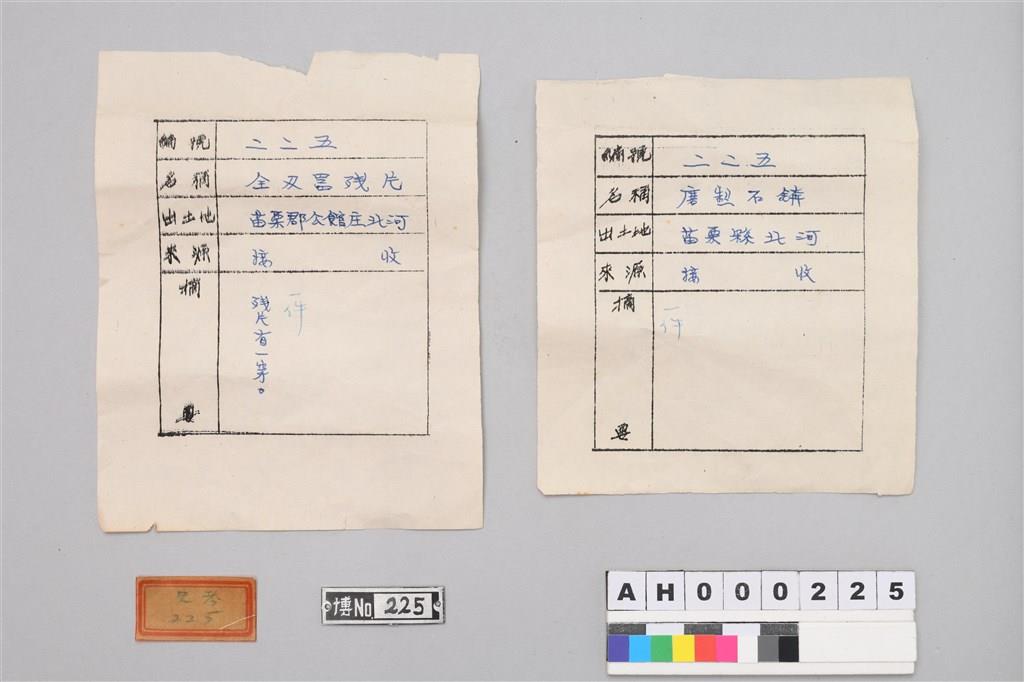 編號 二二五
名稱 全刃器残片
出土地 苗栗郡公館庄北河
來源 接收
摘要 残片有一穿。
一件
編號 二二五
名稱 磨製石鏻
出土地 苗栗縣北河
來源 接收
摘要 一件
史考
225
博No. 225
AH000225